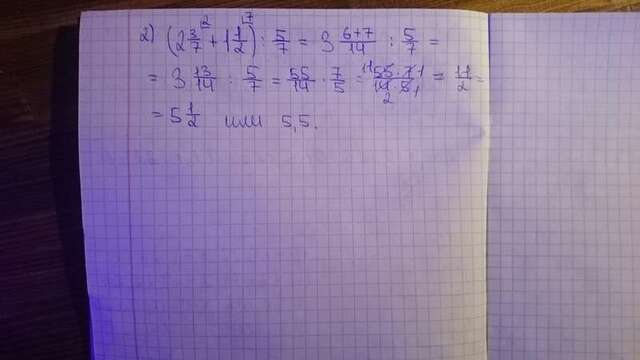 2) (2 3/7 + 1 1/2) : 5/7 = 3 (6+7)/14 : 5/7 =
= 3 13/14 : 5/7 = 55/14 · 7/5 = (55 · 7)/(14 · 5) = 11/2 =
= 5 1/2 или 5,5.